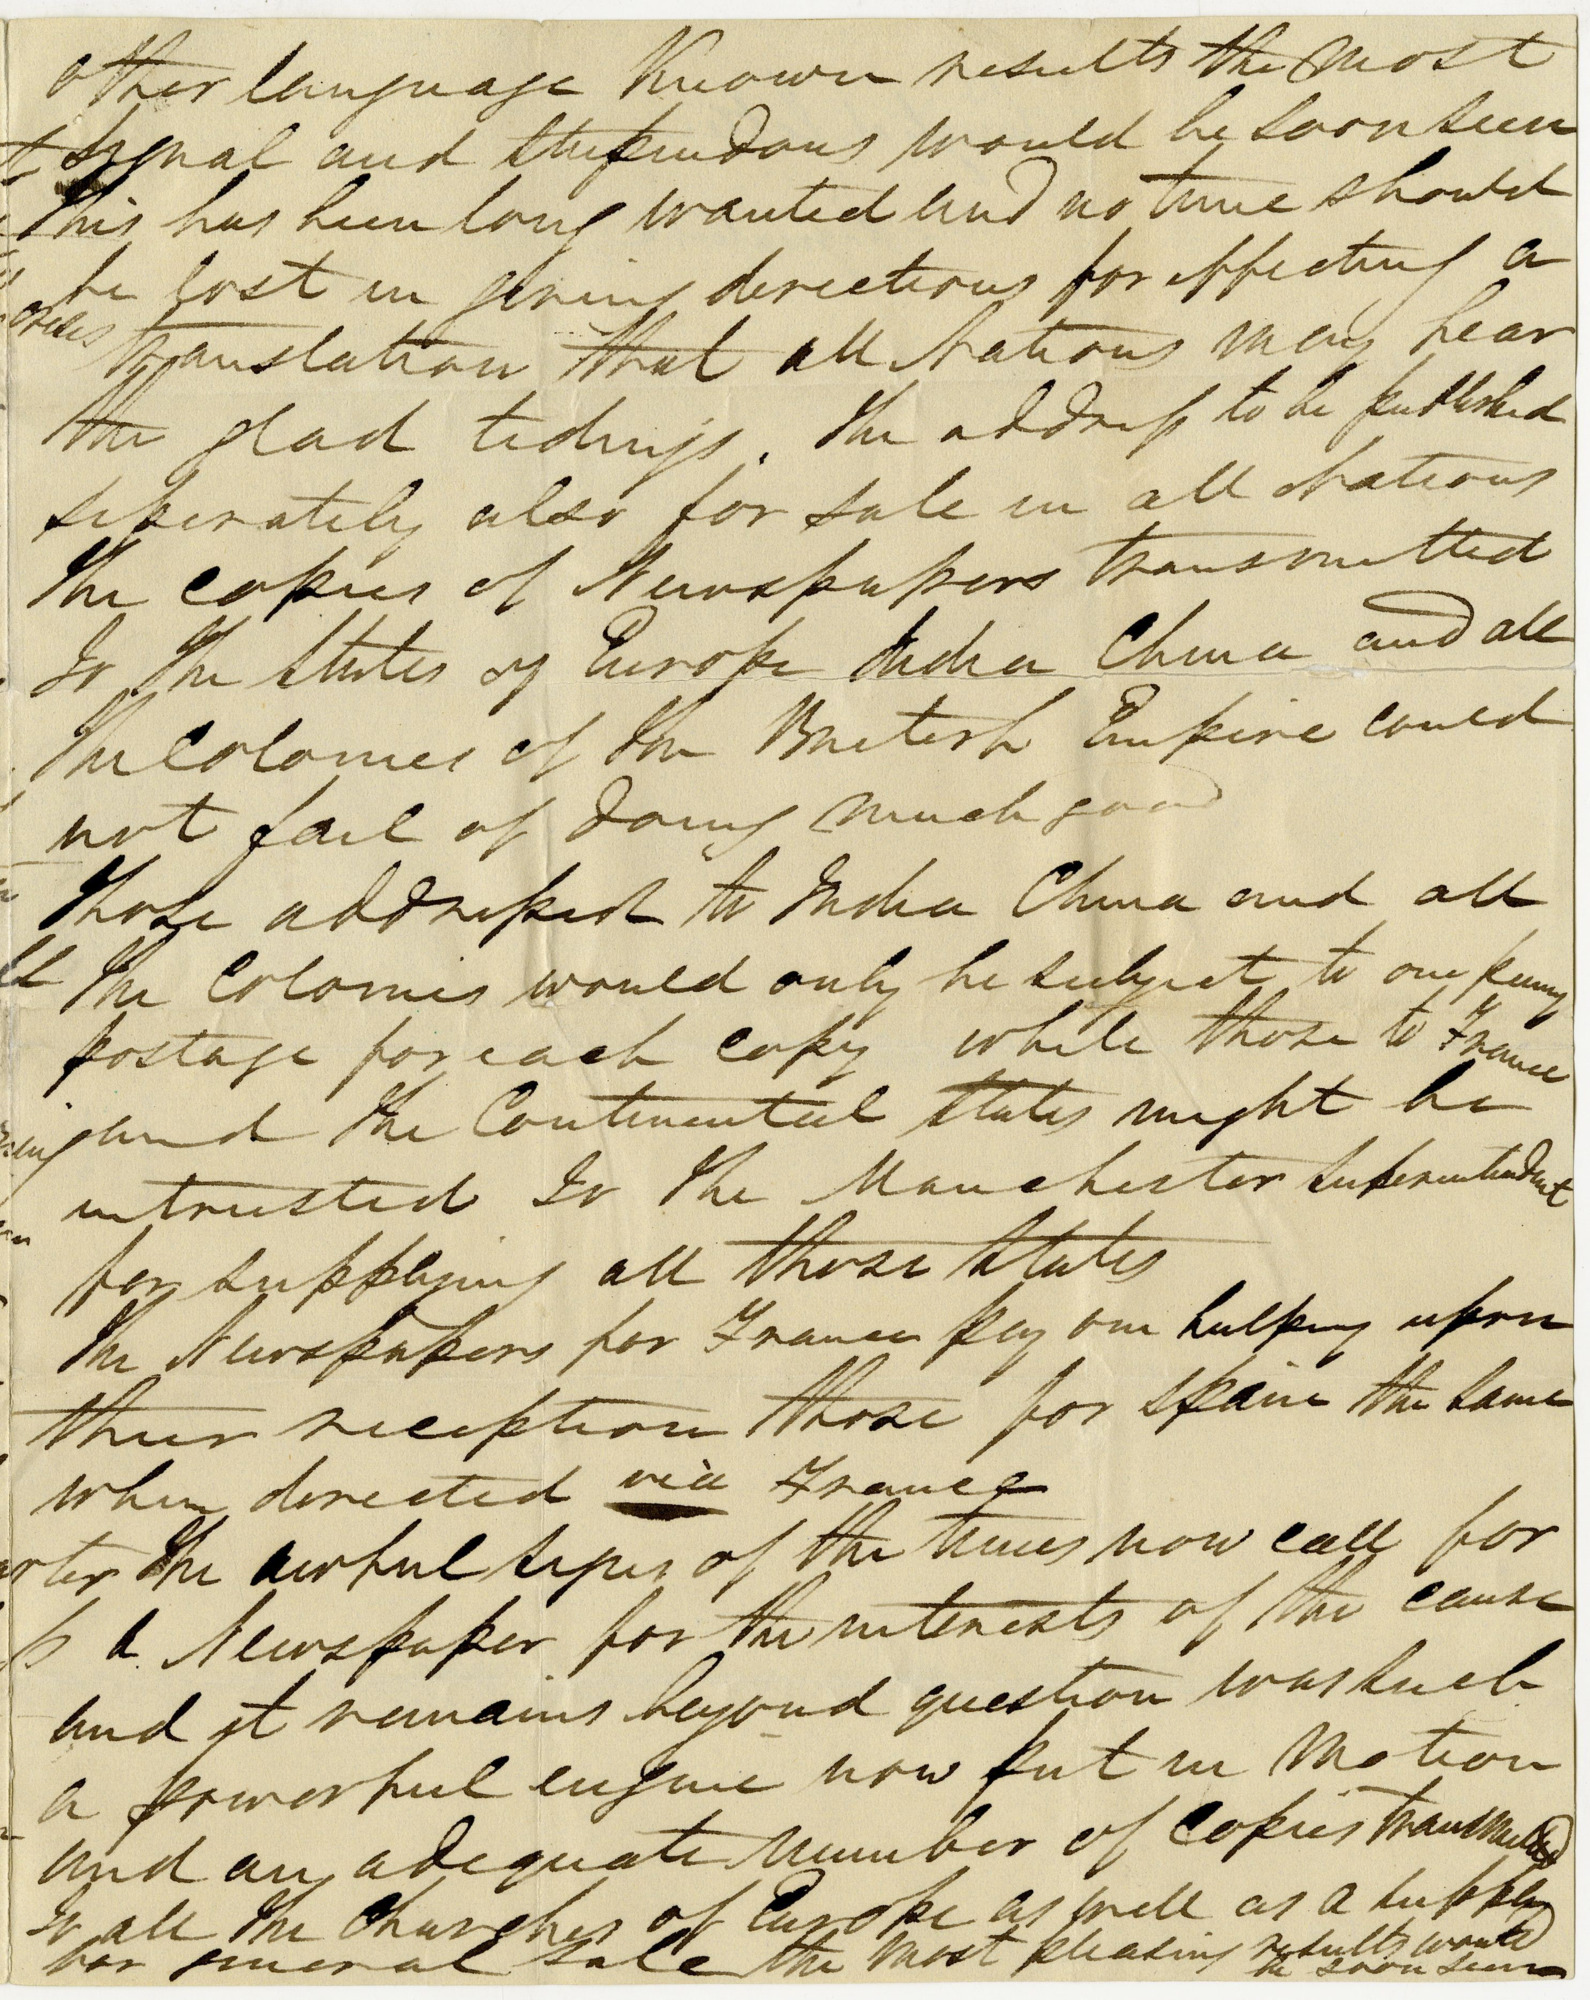 other language known results the most
signal and stupendous would be soon seen
this has been long wanted and no time should
be lost in giving directions for effecting a
translation that all Nations may hear
the glad tidings. The address to be published
seperately also for sale in all Nations
The copies of Newspapers transmitted
to the States of Europe India China and all
the Colonies of the British Empire could
not fail of doing much good
Those addressed to India China and all
the Colonies would only be subject to one penny
postage for each copy while those to France
and the Continental States might be
intrusted to the Manchester Superintendent
for supplying all those States
The Newspapers for France pay one halfpeny upon
their reception those for Spain the same
when directed via France
The awful signs of the times now call for
a Newspaper for the interests of the cause
and it remains beyond question was such
a powerful engine now put in Motion
and an adequate Number of Copies transmitted
to all the Churches of Europe as well as a supply
for general sale the most pleasing results would
be soon seen